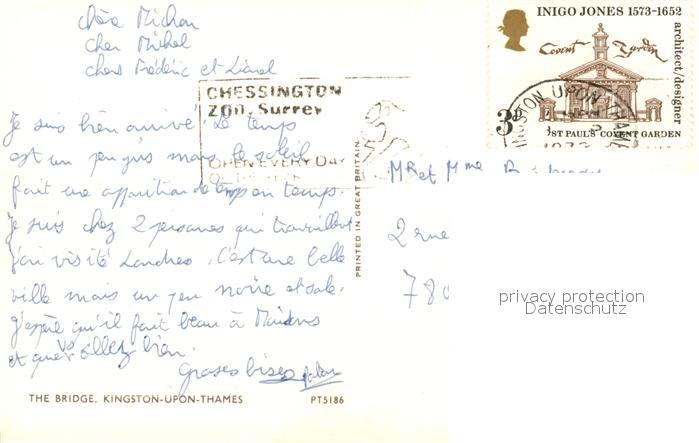 chère Michou
cher Michel
chers Frédéric et Lionel
Je suis bien arrivé. Le temps
est un peu gris mais le soleil
fait une apparition de temps en temps.
Je suis chez 2 personnes qui travaillent
j'ai visité Londres. C'est une belle
ville mais un peu noire et sale.
J'espère qu'il fait beau à
et que vs allez bien.
Grosses bises
THE BRIDGE, KINGSTON-UPON-THAMES PT5186
PRINTED IN GREAT BRITAIN
CHESSINGTON
ZOO, Surrey
OPEN EVERY DAY
INIGO JONES 1573-1652
architect/designer
Covent Garden
3P
ST PAUL'S COVENT GARDEN
KINGSTON UPON THAMES
1973
Mr et Mme
2 rue
780
privacy protection
Datenschutz